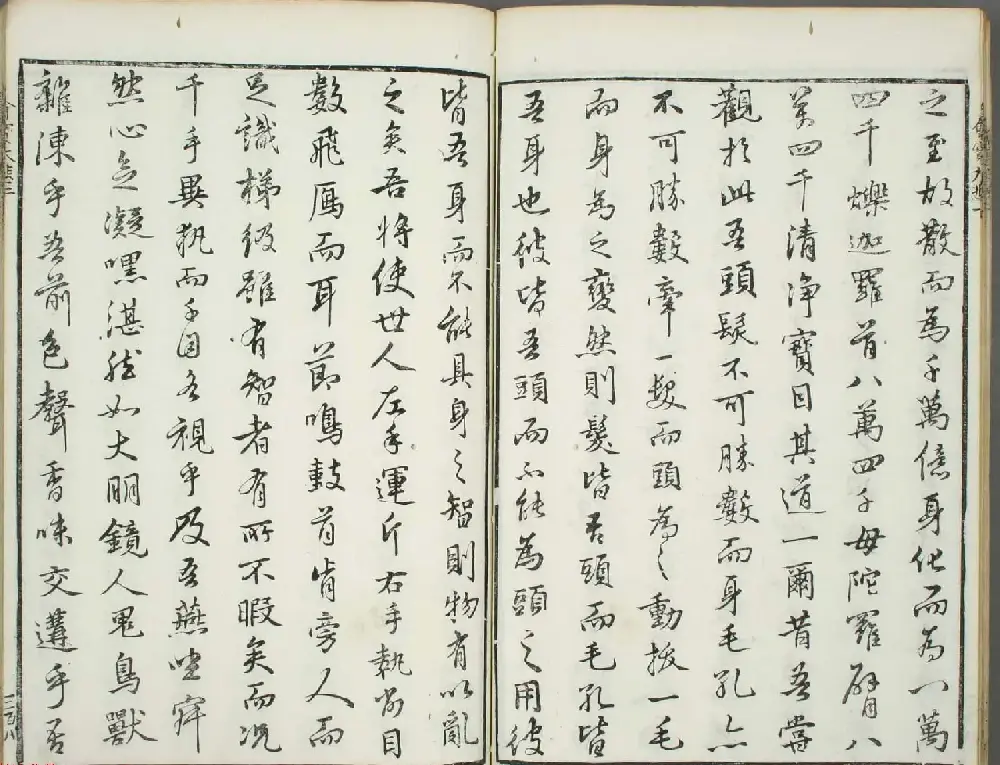 之至故散而為千萬億身化而為八萬
四千爍迦羅首八萬四千母陀羅臂八
萬四千清净寶目其道一爾昔吾嘗
觀於此吾頭髮不可勝數而身毛孔亦
不可勝數牽一髮而頭為之動拔一毛
而身為之變然則髮皆吾頭而毛孔皆
吾身也彼皆吾頭而不能為頭之用彼
皆吾身而不能具身之智則物有以亂
之矣吾將使世人左手運斤右手執削目
數飛鴈而耳節鳴鼓首肯旁人而
足識梯級雖有智者有所不暇矣而況
千手異執而千目各視乎及吾燕坐寂
然心念凝嘿湛然如大明鏡人鬼鳥獸
雜陳乎吾前色聲香味交遘乎吾